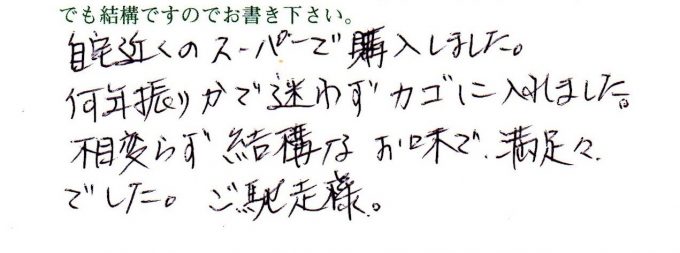 でも結構ですのでお書き下さい。
自宅近くのスーパーで購入しました。
何年振りかで迷わずカゴに入れました。
不相変らず結構なお味で、満足々、
でした。ご馳走様。